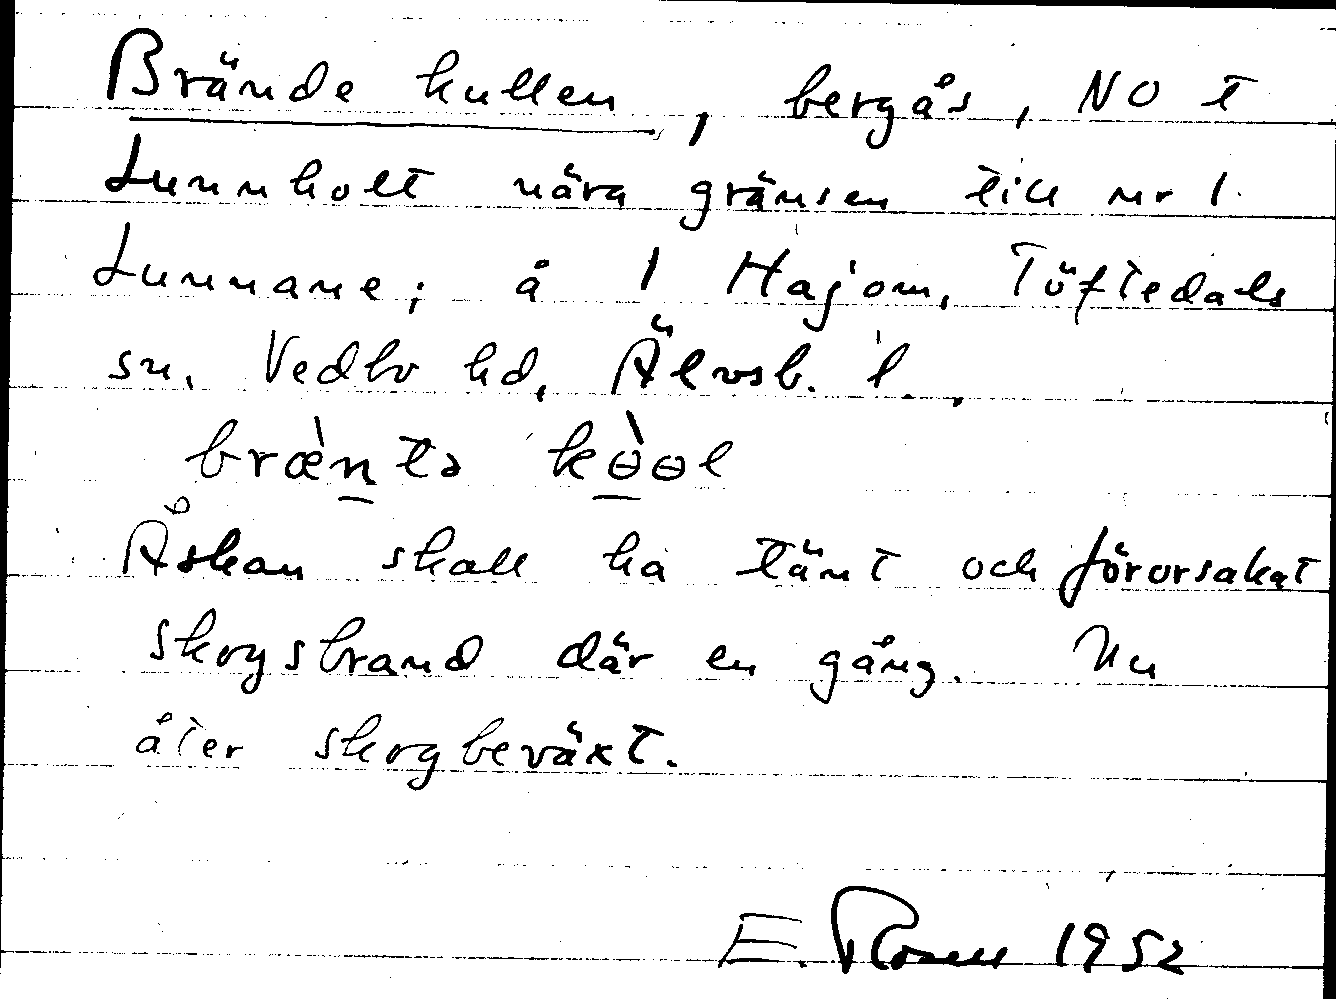 Brände kullen, bergås, NO t
Lunnholt nära gränsen till nr 1
Lunnane; å 1 Hajom, Töftedals
sn. Vedbo hd, Älvsb. l.
bræ̀n̲tə kɵ̲̀ɵl
Åskan skall ha tänt och förorsakat
skogsbrand där en gång. Nu
åter skogbeväxt.
E. Rosell 1952